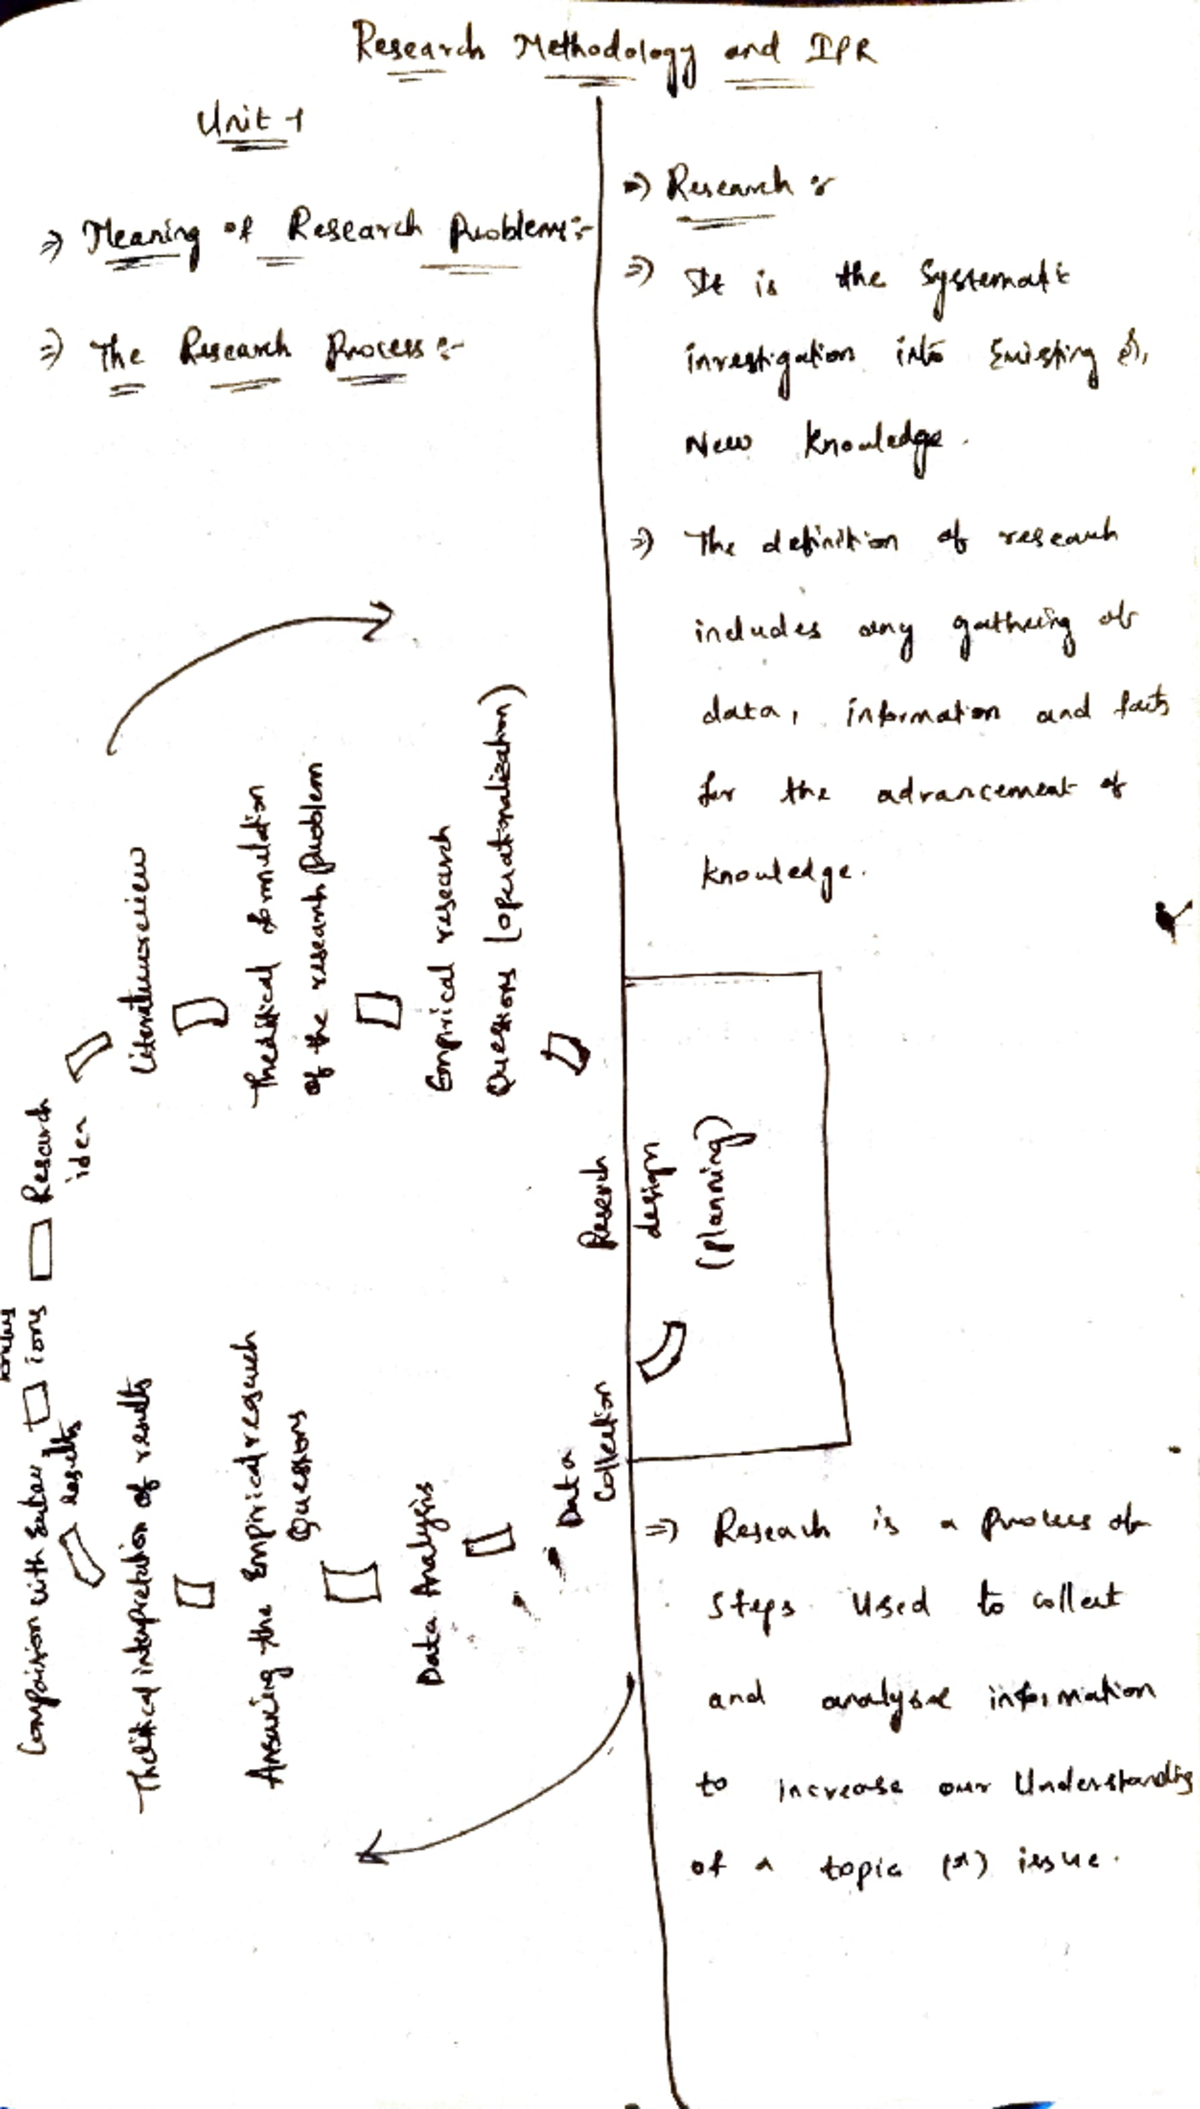 Research Methodology and IPR
Unit-1
=) Meaning of Research Problems:-
=) The Research Process:-
Research
idea
Literaturereview
Theoritical formulation
of the research problem
Empirical research
Questions (operationalization)
Reserch
design
(planning)
Data
Collection
Data Analysis
Answring the Empirical research
Questions
Theoritical interpretation of results
Comparision with
ions
results
=) Research :-
=) It is the Systematic
investigation into Existing &
New knowledge.
=) The definition of research
includes any gathering of
data, information and facts
for the advancement of
knowledge.
=) Research is a process of
steps used to collect
and analyse information
to increase our Understanding
of a topic (or) issue.